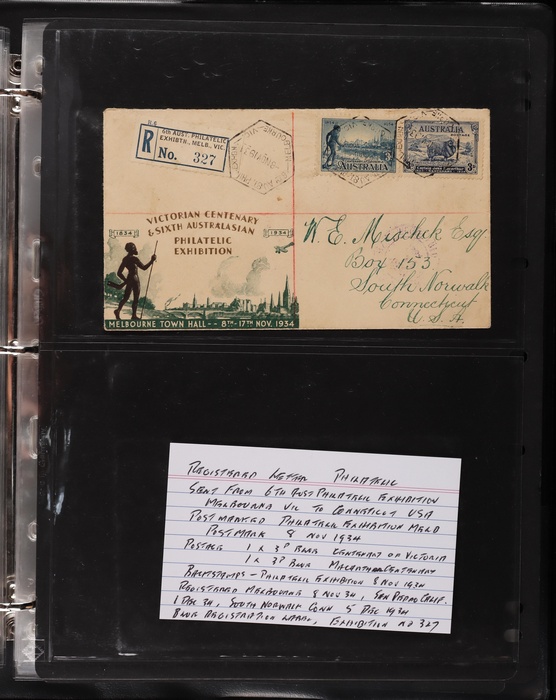 R
6th AUST. PHILATELIC
EXHIBTN., MELB., VIC.
No. 327
AUSTRALIA
3D
AUSTRALIA
3D
VICTORIAN CENTENARY
& SIXTH AUSTRALASIAN
PHILATELIC
EXHIBITION
1834
1934
MELBOURNE TOWN HALL -- 8TH-17TH NOV. 1934
W. E. Mischek Esq
Box 153
South Norwalk
Connecticut
U. S. A.
REGISTERED LETTER PHILATELIC
SENT FROM 6TH AUST PHILATELIC EXHIBITION
MELBOURNE VIC TO CONNETICUT USA
POSTMARKED PHILATELIC EXHIBITION MELB
POSTMARK 8 NOV 1934
POSTAGE 1 x 3D BLUE CENTENARY OF VICTORIA
1 x 3D BLUE MACARTHUR CENTENARY
BACKSTAMPS - PHILATELIC EXHIBITION 8 NOV 1934
REGISTERED MELBOURNE 8 NOV 34, SAN PEDRO CALIF.
1 DEC 34, SOUTH NORWALK CONN 5 DEC 1934
BLUE REGISTRATION LABEL, EXHIBITION NO 327